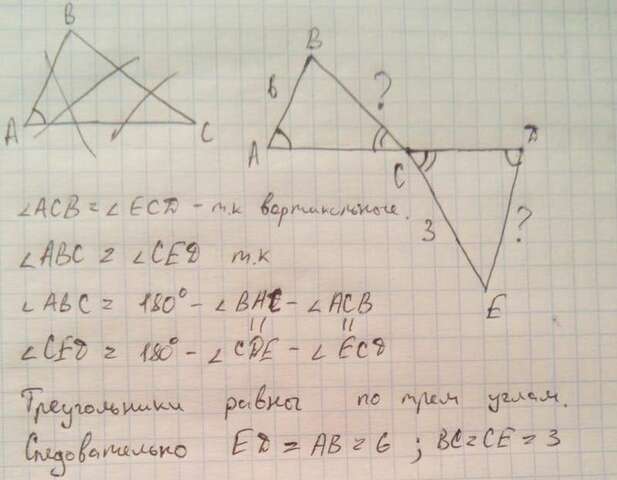 B
A
C
B
6
?
A
C
D
3
?
E
∠ACB = ∠ECD - т.к вертикальные.
∠ABC = ∠CED т.к
∠ABC = 180° - ∠BAC - ∠ACB
∠CED = 180° - ∠CDE - ∠ECD
Треугольники равны по трем углам.
Следовательно ED = AB = 6 ; BC = CE = 3